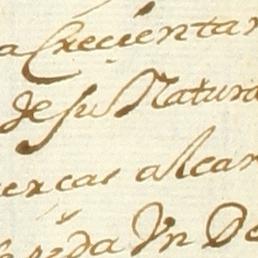 a Crecientar
de su Natura
uencas alcan
da Vn De